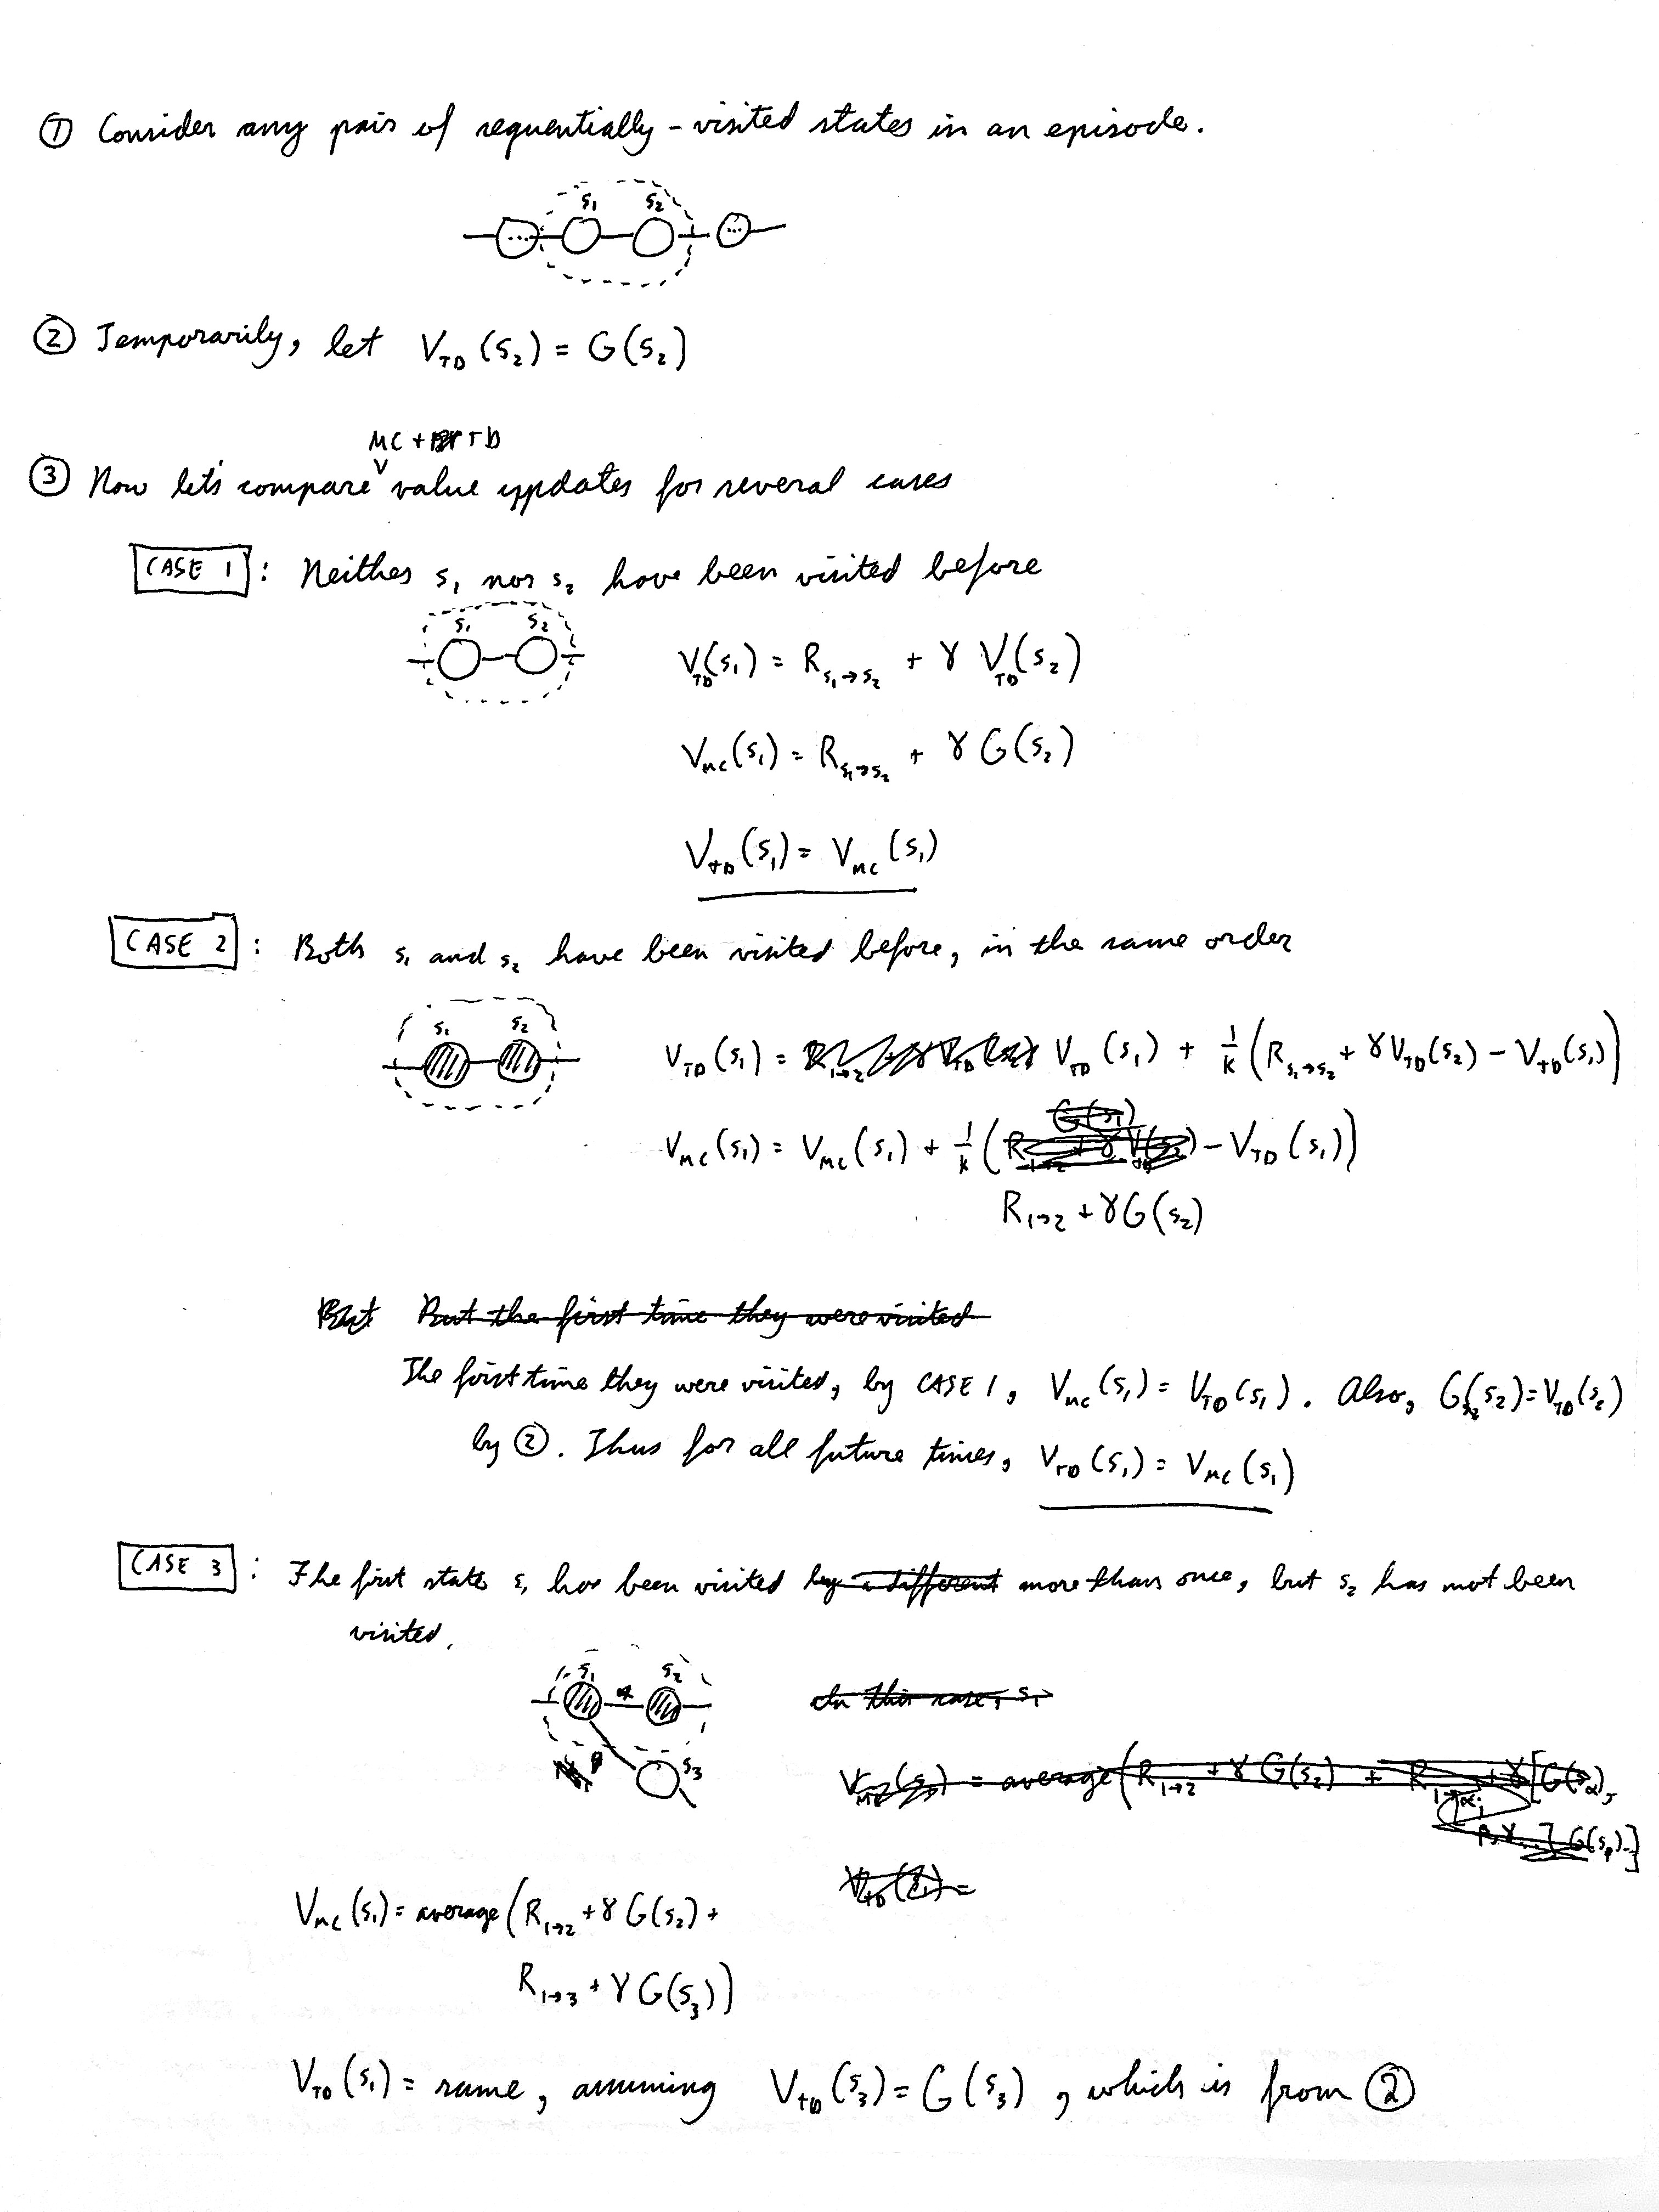 ① Consider any pair of sequentially-visited states in an episode.
s₁ s₂
... ...
② Temporarily, let V_TD (s₂) = G(s₂)
MC + TD
③ Now let's compare value updates for several cases
CASE 1 : Neither s₁ nor s₂ have been visited before
s₁ s₂
V_TD(s₁) = R_s₁→s₂ + γ V_TD(s₂)
V_MC(s₁) = R_s₁→s₂ + γ G(s₂)
V_TD(s₁) = V_MC(s₁)
CASE 2 : Both s₁ and s₂ have been visited before, in the same order
s₁ s₂
V_TD(s₁) = V_TD(s₁) + 1/k (R_s₁→s₂ + γV_TD(s₂) − V_TD(s₁))
G(s₁)
V_MC(s₁) = V_MC(s₁) + 1/k (R_1→2 + γ V_TD(s₂) − V_TD(s₁))
R_1→2 + γG(s₂)
But But the first time they were visited
The first time they were visited, by CASE 1, V_MC(s₁) = V_TD(s₁). Also, G(s₂) = V_TD(s₂)
by ②. Thus for all future times, V_TD(s₁) = V_MC(s₁)
CASE 3 : The first state s₁ has been visited by a different more than once, but s₂ has not been
visited.
s₁ s₂
In this case, s₁
s₃
V_MC(s₁) = average(R_1→2 + γ G(s₂) +
V_TD(s₁) =
V_MC(s₁) = average(R_1→2 + γ G(s₂) +
R_1→3 + γ G(s₃))
V_TD(s₁) = same, assuming V_TD(s₃) = G(s₃), which is from ②